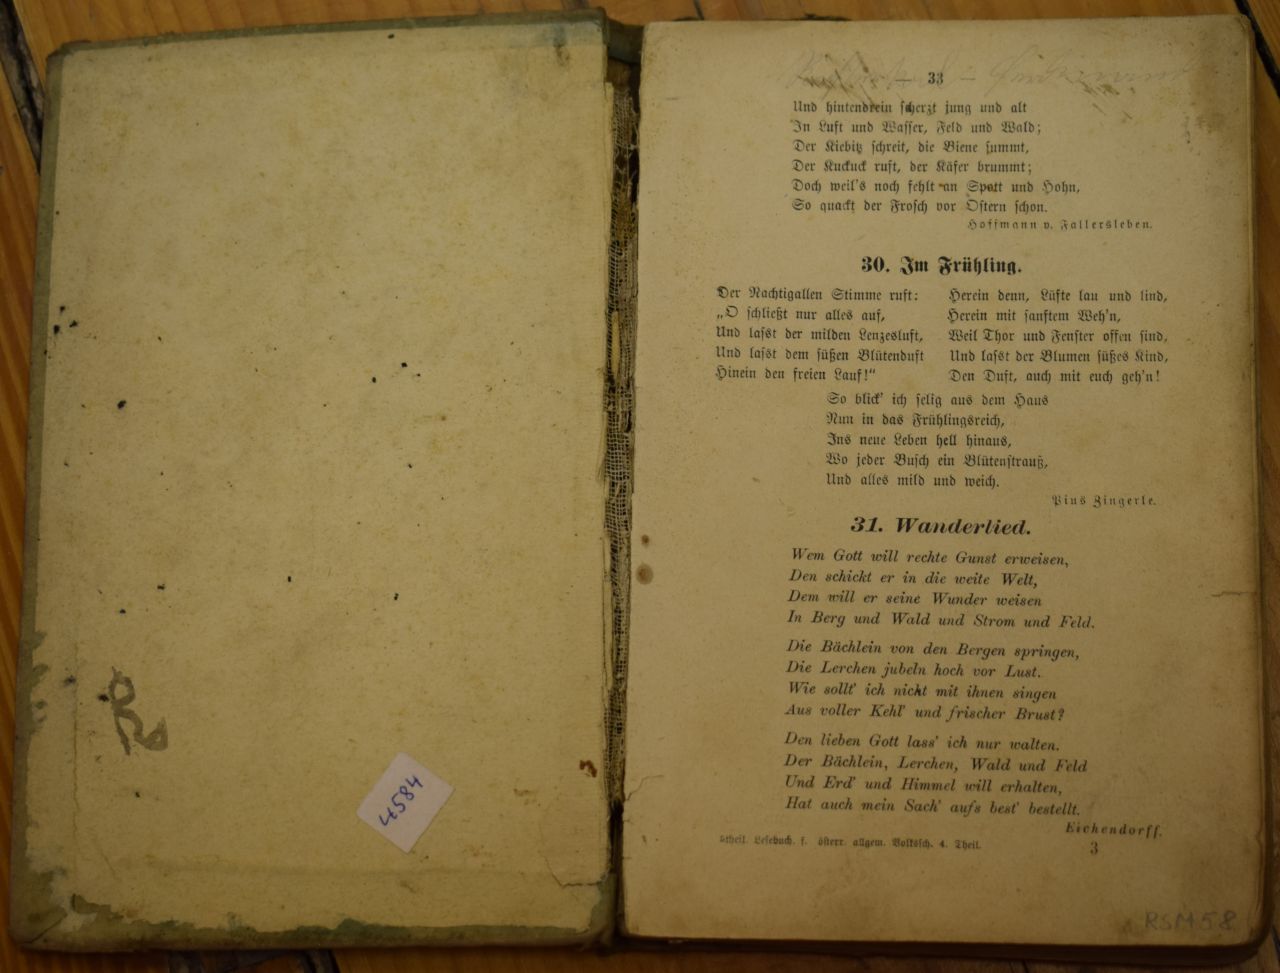 4584
— 33
Und hintendrein scherzt jung und alt
In Luft und Wasser, Feld und Wald;
Der Kiebitz schreit, die Biene summt,
Der Kuckuck ruft, der Käfer brummt;
Doch weil's noch fehlt an Spott und Hohn,
So quackt der Frosch vor Ostern schon.
Hoffmann v. Fallersleben.
30. Im Frühling.
Der Nachtigallen Stimme ruft:
„O schließt nur alles auf,
Und lasst der milden Lenzesluft,
Und lasst dem süßen Blütenduft
Hinein den freien Lauf!“
Herein denn, Lüfte lau und lind,
Herein mit sanftem Weh'n,
Weil Thor und Fenster offen sind,
Und lasst der Blumen süßes Kind,
Den Duft, auch mit euch geh'n!
So blick' ich selig aus dem Haus
Nun in das Frühlingsreich,
Ins neue Leben hell hinaus,
Wo jeder Busch ein Blütenstrauß,
Und alles mild und weich.
Pius Zingerle.
31. Wanderlied.
Wem Gott will rechte Gunst erweisen,
Den schickt er in die weite Welt,
Dem will er seine Wunder weisen
In Berg und Wald und Strom und Feld.
Die Bächlein von den Bergen springen,
Die Lerchen jubeln hoch vor Lust.
Wie sollt' ich nicht mit ihnen singen
Aus voller Kehl' und frischer Brust?
Den lieben Gott lass' ich nur walten.
Der Bächlein, Lerchen, Wald und Feld
Und Erd' und Himmel will erhalten,
Hat auch mein Sach' aufs best' bestellt.
Eichendorff.
5theil. Lesebuch. f. österr. allgem. Volkssch. 4. Theil.
3
RSM 58